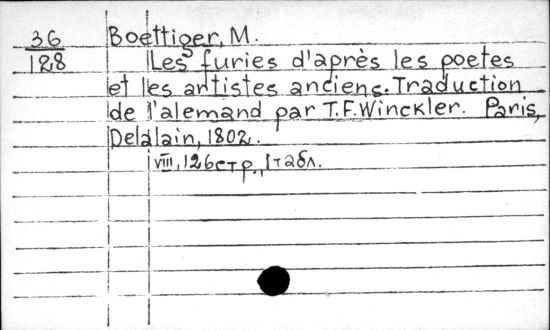 36
128
Boettiger, M.
Les furies d'après les poetes
et les artistes anciens. Traduction
de l'alemand par T.F. Winckler. Paris,
Delalain, 1802.
VIII, 126 стр., 1 табл.